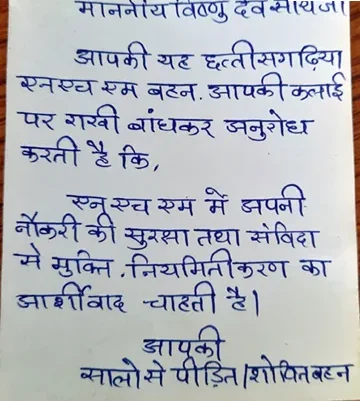 माननीय विष्णु देव साय जी
आपकी यह छत्तीसगढ़िया
एनएच एम बहन. आपकी कलाई
पर राखी बांधकर अनुरोध
करती है कि,
एन एच एम में अपनी
नौकरी की सुरक्षा तथा संविदा
से मुक्ति. नियमितीकरण का
आर्शीवाद चाहती है।
आपकी
सालो से पीड़ित/शोषित बहन